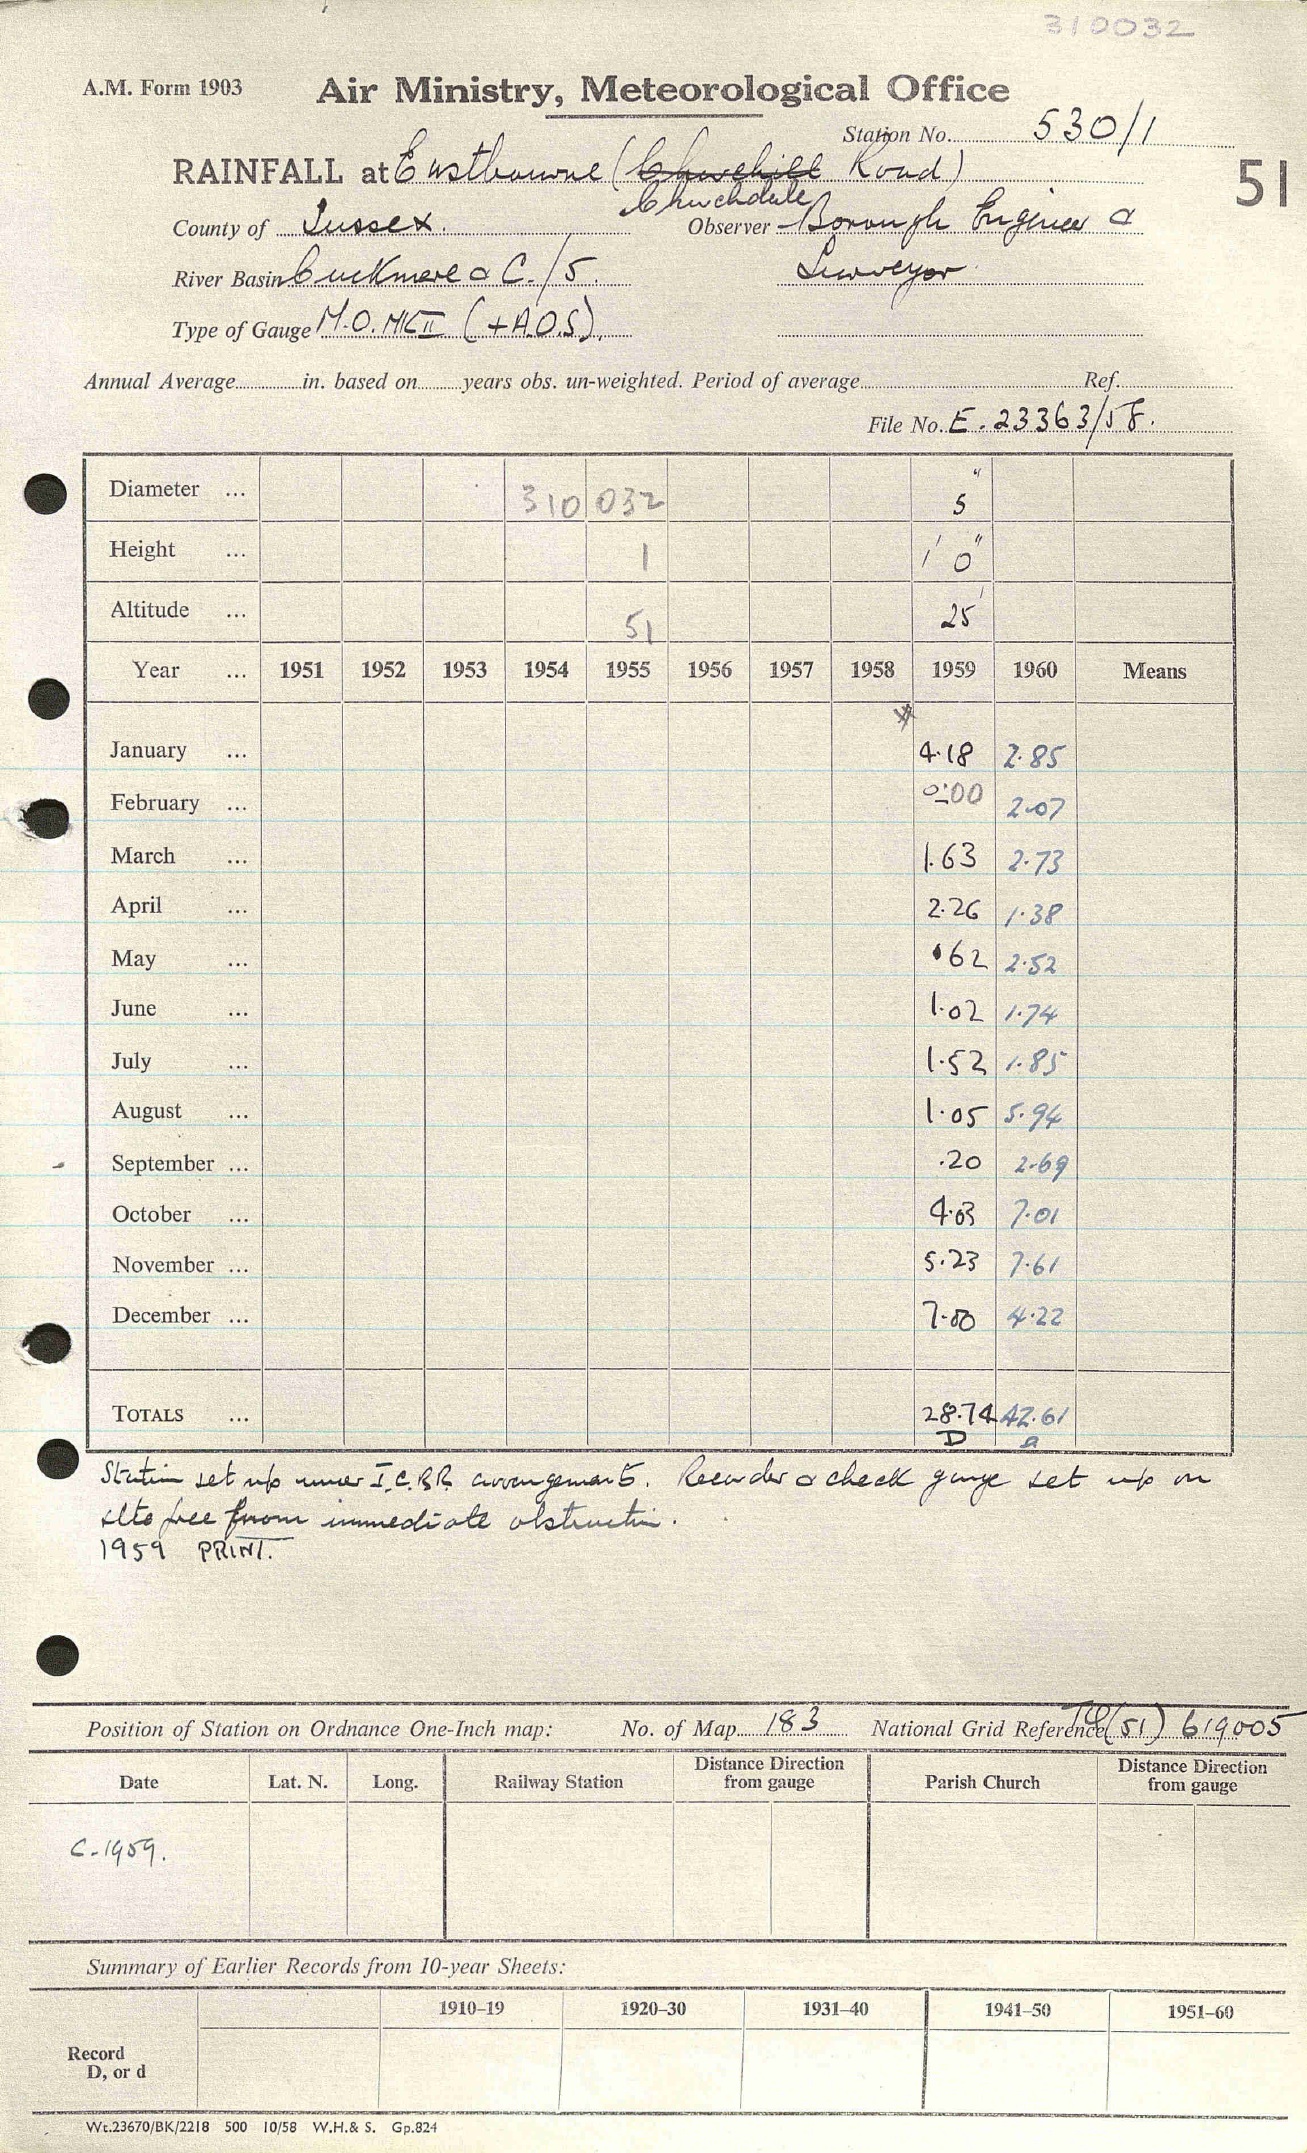 310032
A.M. Form 1903 Air Ministry, Meteorological Office
Station No. 530/1
RAINFALL at Eastbourne (Churchill Road) 51
Churchdale
County of Sussex. Observer Borough Engineer &
River Basin Cuckmere & C./5. Surveyor
Type of Gauge M.O. MK II (+A.O.S).
Annual Average in. based on years obs. un-weighted. Period of average Ref.
File No. E.23363/58.
Diameter ... 310 032 5"
Height ... 1 1' 0"
Altitude ... 51 25'
Year ... 1951 1952 1953 1954 1955 1956 1957 1958 1959 1960 Means
January ... 4.18 2.85
February ... 0.00 2.07
March ... 1.63 2.73
April ... 2.26 1.38
May ... .62 2.52
June ... 1.02 1.74
July ... 1.52 1.85
August ... 1.05 5.94
September ... .20 2.69
October ... 4.03 7.01
November ... 5.23 7.61
December ... 7.00 4.22
TOTALS ... 28.74 42.61
D a
Station set up under I.C.R.R. arrangements. Recorder & check gauge set up on
site free from immediate obstruction.
1959 PRINT.
Position of Station on Ordnance One-Inch map: No. of Map 183 National Grid Reference TQ (51) 619005
Date Lat. N. Long. Railway Station Distance Direction from gauge Parish Church Distance Direction from gauge
C-1959.
Summary of Earlier Records from 10-year Sheets:
1910–19 1920–30 1931–40 1941–50 1951–60
Record
D, or d
Wt.23670/BK/2218 500 10/58 W.H.& S. Gp.824